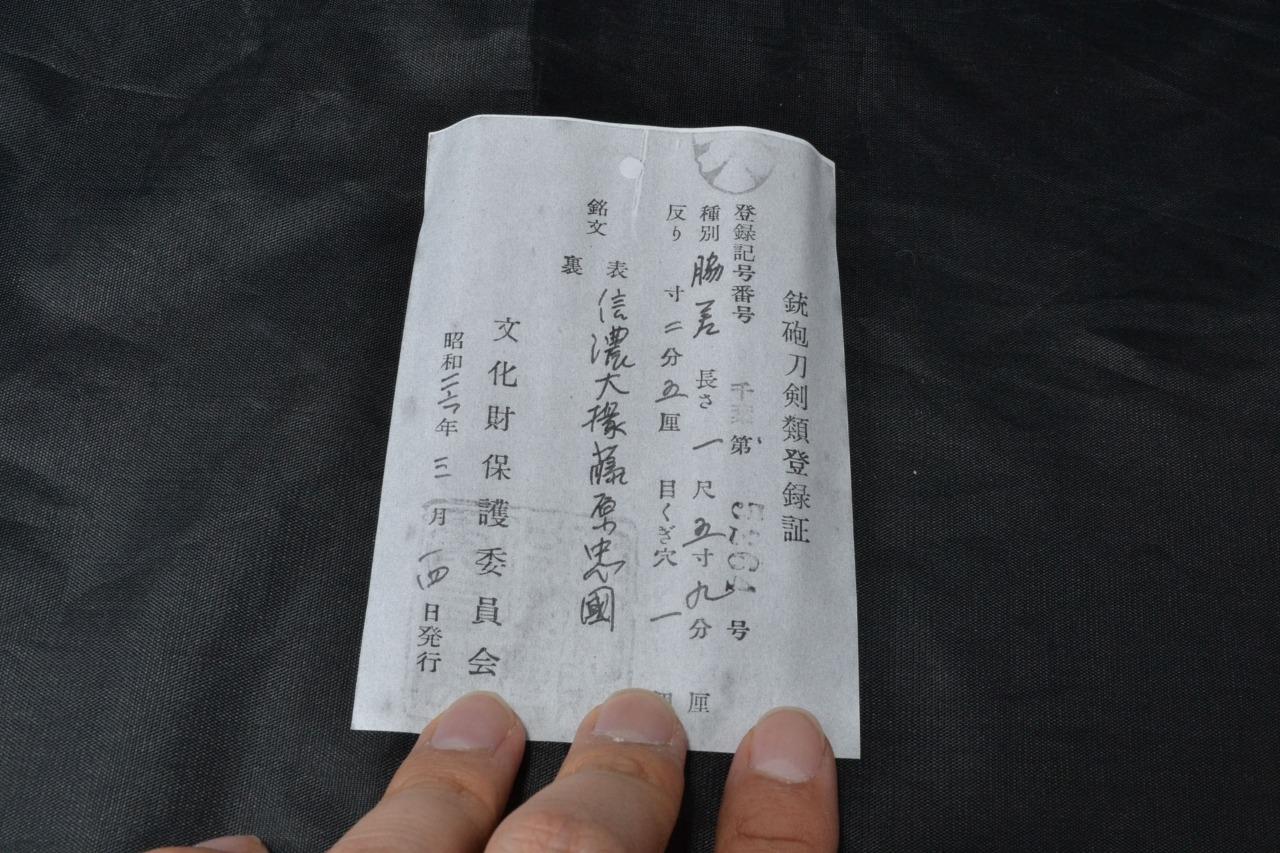 銃砲刀剣類登録証
登録記号番号 千葉第 号
種別 脇差 長さ 一尺五寸九分 厘
反り 寸二分五厘 目くぎ穴 一
銘文
表 信濃大掾藤原忠國
裏
文化財保護委員会
昭和二六年三月一四日発行